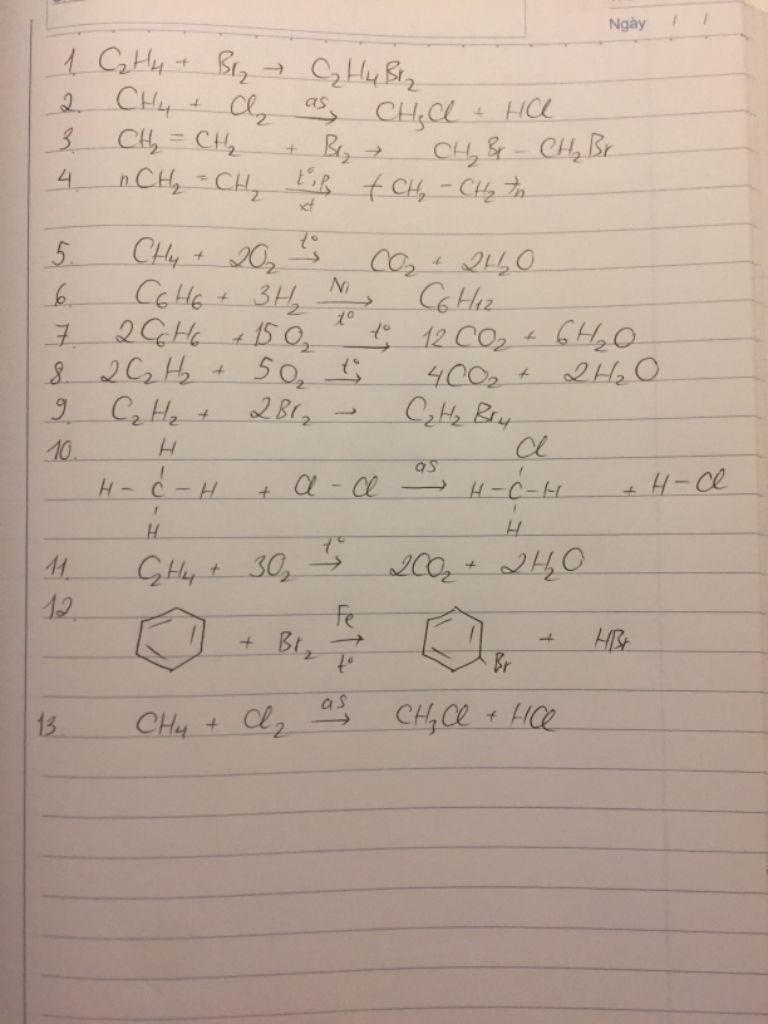 Ngày / /
1. C₂H₄ + Br₂ → C₂H₄Br₂
2. CH₄ + Cl₂ as→ CH₃Cl + HCl
3. CH₂ = CH₂ + Br₂ → CH₂Br – CH₂Br
4. nCH₂ = CH₂ t°,p→xt (CH₂ – CH₂)n
5. CH₄ + 2O₂ t°→ CO₂ + 2H₂O
6. C₆H₆ + 3H₂ Ni→t° C₆H₁₂
7. 2C₆H₆ + 15O₂ t°→ 12CO₂ + 6H₂O
8. 2C₂H₂ + 5O₂ t°→ 4CO₂ + 2H₂O
9. C₂H₂ + 2Br₂ → C₂H₂Br₄
10. H Cl
H – C – H + Cl – Cl as→ H – C – H + H – Cl
H H
11. C₂H₄ + 3O₂ t°→ 2CO₂ + 2H₂O
12. + Br₂ Fe→t° Br + HBr
13. CH₄ + Cl₂ as→ CH₃Cl + HCl